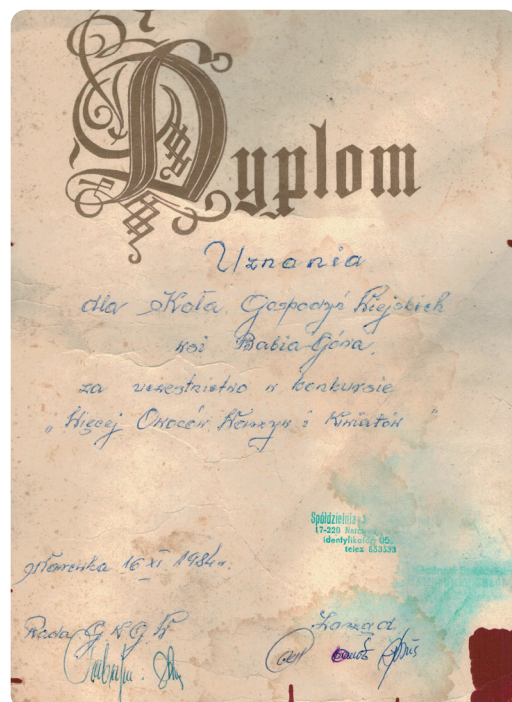 Dyplom
Uznania
dla Koła Gospodyń Wiejskich
wsi Babia-Góra
za uczestnictwo w konkursie
„Więcej Owoców Warzyw i Kwiatów"
Spółdzielnia
17-220
identyfikator
telex 853533
Narewka 16 XI 1984r.
Rada G K G W
Zarząd